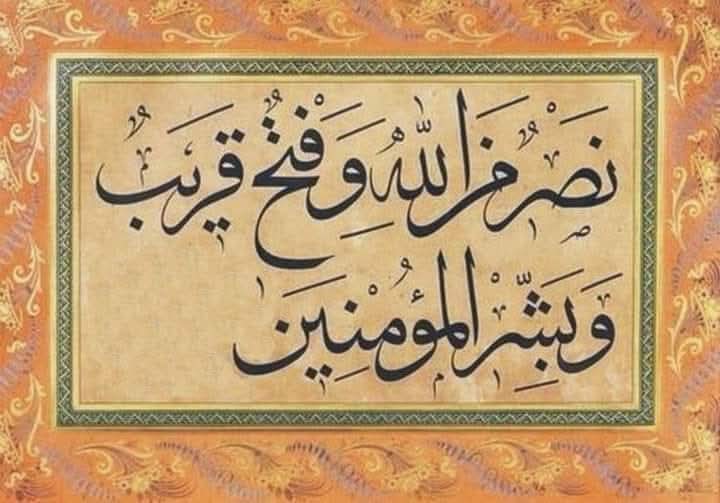 نَصْرٌ مِنَ اللّٰهِ وَفَتْحٌ قَرِيبٌ
وَبَشِّرِ الْمُؤْمِنِينَ